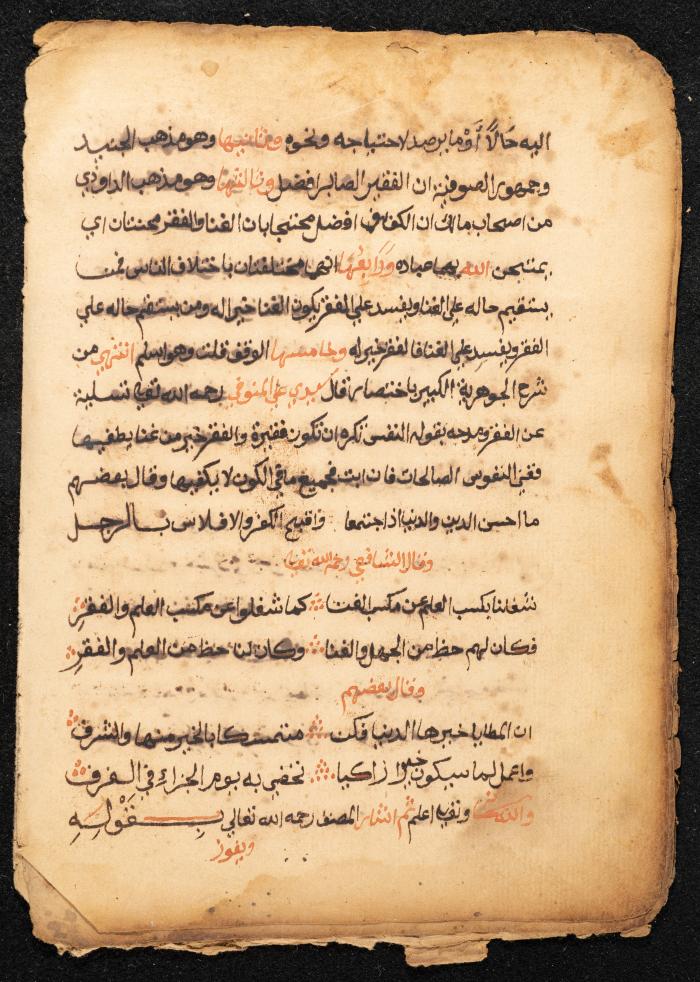 اليه حالاً أو ما يرصد لاحتياجه ونحوه وثانيها وهو مذهب الجنيد
وجمهور الصوفية ان الفقير الصابر افضل وثالثها وهو مذهب الداودي
من اصحاب مالك ان الكفاف افضل محتجا بان الغنا والفقر محنتان اي
يمتحن الله بهما عباده ورابعها انهما مختلفتان باختلاف الناس فمن
يستقيم حاله على الغنا ويفسد على الفقر يكون الغنا خير اله ومن يستقم حاله علي
الفقر ويفسد علي الغنا فالفقر خير له وخامسها الوقف قلت وهو اسلم انتهي من
شرح الجوهرية الكبير باختصار قال سيدي علي المنوفي رحمه الله تعا تسلية
عن الفقر ومدحه بقوله النفس تكره ان تكون فقيرة والفقر خير من غنا يطغيها
فغني النفوس الصالحات فان ابت فجميع ما في الكون لا يكفيها وقال بعضهم
ما احسن الدين والدنيا اذا اجتمعا واقبح الكفر والافلاس بالرجل
وقال الشافعي رحمه الله تعا
شغلنا بكسب العلم عن مكسب الغنا كما شغلوا عن مكسب العلم والفقر
فكان لهم حظ من الجهل والغنا وكان لنا حظ من العلم والفقر
وقال بعضهم
ان المطايا خيرها الدنيا فكن متمسكا بالخير منها والشرف
واعمل لما سيكون خيرا زاكيا تحضي به يوم الجزاء في الغرف
والله اعلم ثم اشار المصنف رحمه الله تعالي بقوله
ويفوز